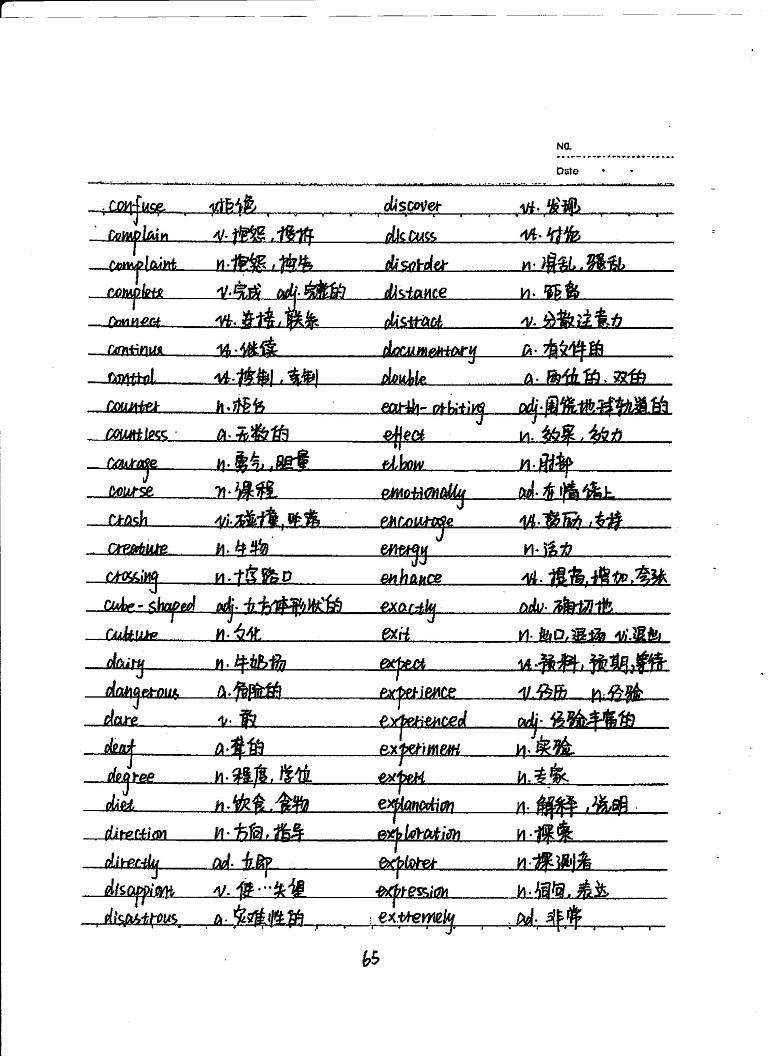 NO.
Date
confuse v.拒绝 discover vt. 发现
complain v. 抱怨,投诉 discuss vt. 讨论
complaint n. 抱怨,控告 disorder n. 混乱,骚乱
complete v.完成 adj.完整的 distance n. 距离
connect vt. 连接,联系 distract v. 分散注意力
continue vt.继续 documentary a. 有文件的
control vt.控制,克制 double a. 两位的、双的
counter n.柜台 earth-orbiting adj.围绕地球轨道的
countless a.无数的 effect n. 效果,效力
courage n.勇气,胆量 elbow n.肘部
course n.课程 emotionally ad.在情绪上
crash vi.碰撞,坠落 encourage vt.鼓励,支持
creature n.生物 energy n.活力
crossing n.十字路口 enhance vt. 提高,增加,夸张
cube-shaped adj.立方体形状的 exactly adv.确切地
culture n.文化 exit n. 出口,退场 vi.退出
dairy n.牛奶场 expect vt.预料,预期,等待
dangerous a.危险的 experience v.经历 n.经验
dare v. 敢 experienced adj.经验丰富的
deaf a.聋的 experiment n.实验
degree n.程度,学位 expert n.专家
diet n.饮食,食物 explanation n. 解释,说明
direction n.方向,指导 exploration n.探索
directly ad. 立即 explorer n.探测者
disappiont v. 使…失望 expression n.词句,表达
disastrous a.灾难性的 extremely ad. 非常
65